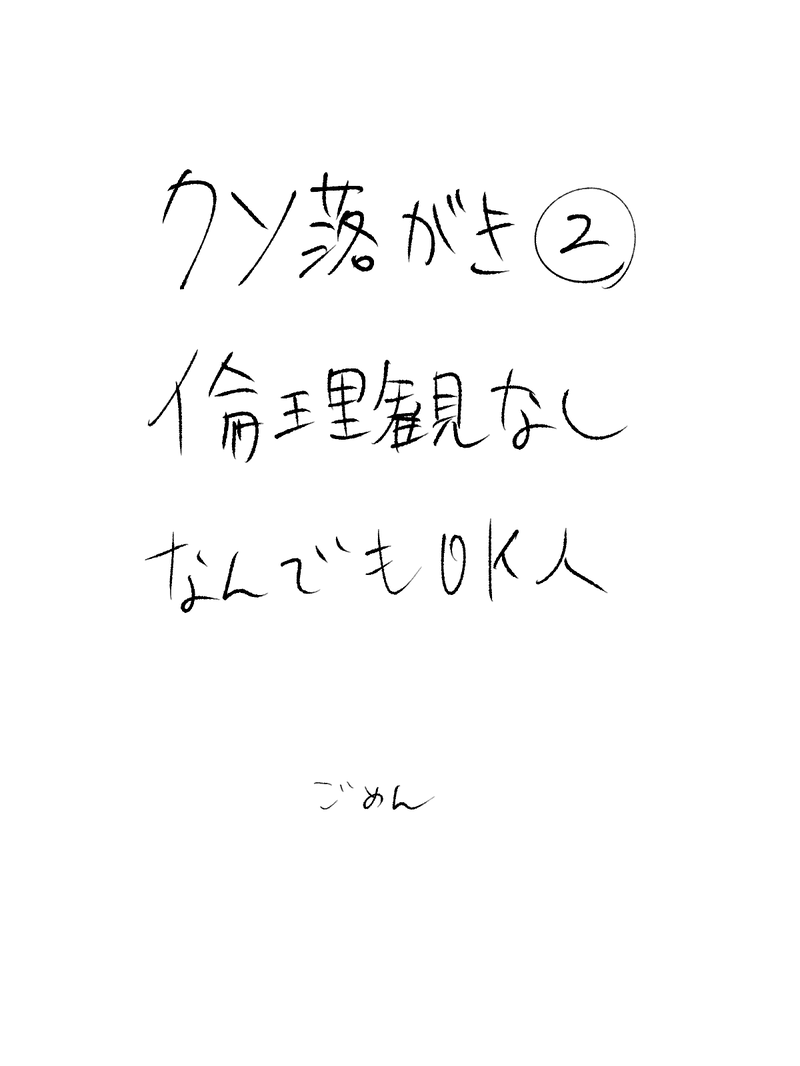 クソ落がき②
倫理観なし
なんでもOK人
ごめん